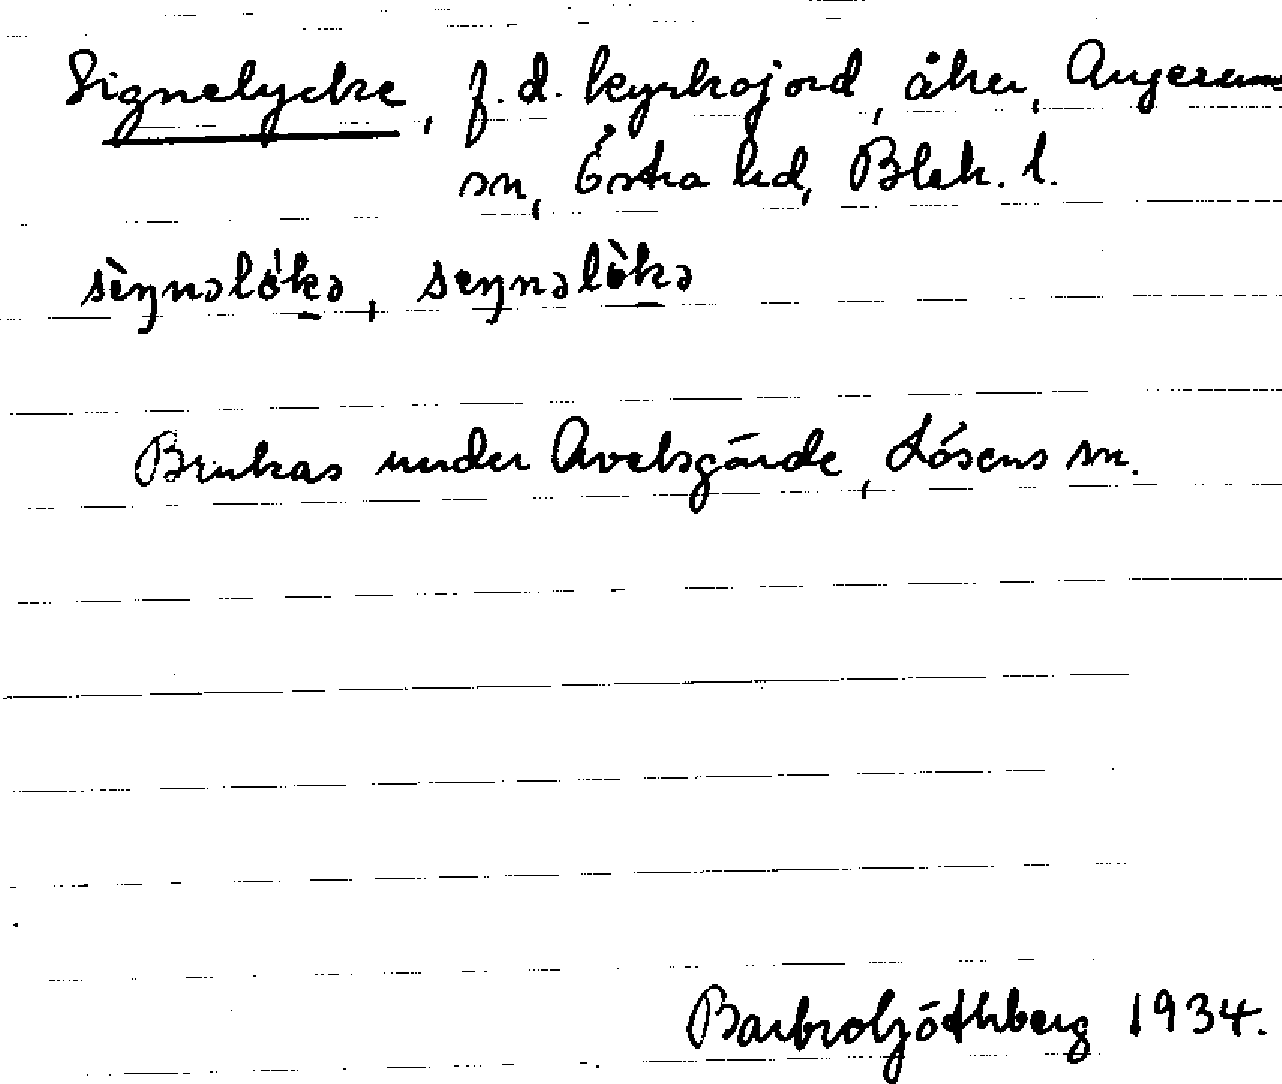 Signelycke, f.d. kyrkojord, åker, Augerums
sn, Östra hd, Blek. l.
sèŋnəlö̀kə, seŋnəlö̀kə
Brukas under Avelsgärde, Lösens sn.
Barbro Göthberg 1934.